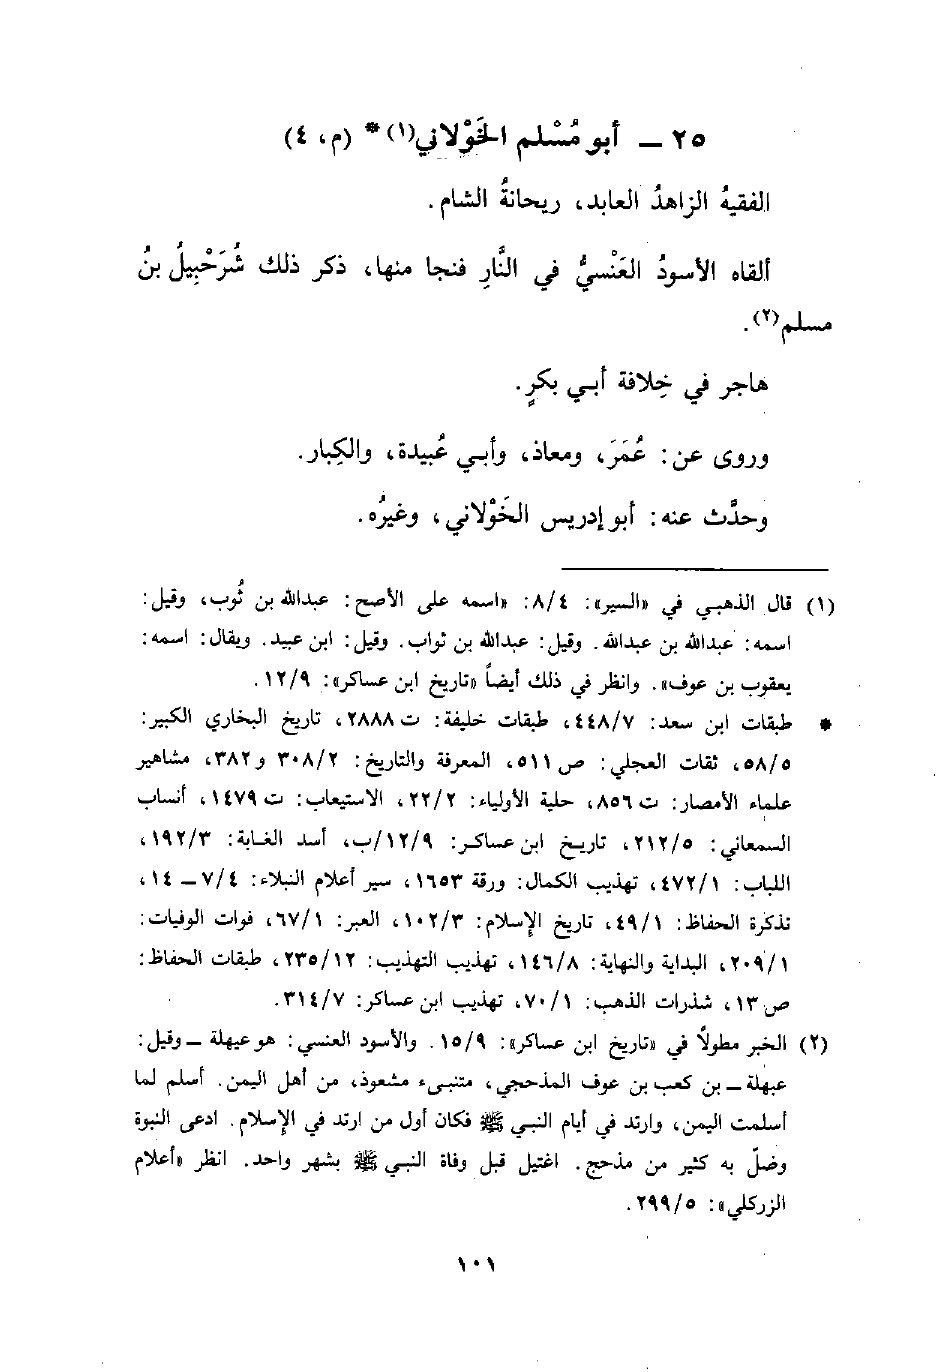 ٢٥ ــ أبو مُسْلم الخَوْلاني(١)* (م، ٤)
الفقيهُ الزاهدُ العابد، ريحانةُ الشام.
ألقاه الأسودُ العَنْسيُّ في النَّارِ فنجا منها، ذكر ذلك شُرَحْبِيلُ بنُ
مسلم(٢).
هاجر في خِلافة أبي بكرٍ.
وروى عن: عُمَرَ، ومعاذ، وأبي عُبيدة، والكِبار.
وحدَّث عنه: أبو إدريس الخَوْلاني، وغيرُه.
(١) قال الذهبي في «السير»: ٨/٤: «اسمه على الأصح: عبدالله بن ثُوب، وقيل:
اسمه: عبدالله بن عبدالله. وقيل: عبدالله بن ثواب. وقيل: ابن عبيد. ويقال: اسمه:
يعقوب بن عوف». وانظر في ذلك أيضاً «تاريخ ابن عساكر»: ١٢/٩.
* طبقات ابن سعد: ٤٤٨/٧، طبقات خليفة: ت ٢٨٨٨، تاريخ البخاري الكبير:
٥٨/٥، ثقات العجلي: ص ٥١١، المعرفة والتاريخ: ٣٠٨/٢ و ٣٨٢، مشاهير
علماء الأمصار: ت ٨٥٦، حلية الأولياء: ٢٢/٢، الاستيعاب: ت ١٤٧٩، أنساب
السمعاني: ٢١٢/٥، تاريخ ابن عساكر: ١٢/٩/ب، أسد الغابة: ١٩٢/٣،
اللباب: ٤٧٢/١، تهذيب الكمال: ورقة ١٦٥٣، سير أعلام النبلاء: ٧/٤ ــ ١٤،
تذكرة الحفاظ: ٤٩/١، تاريخ الإسلام: ١٠٢/٣، العبر: ٦٧/١، فوات الوفيات:
٢٠٩/١، البداية والنهاية: ١٤٦/٨، تهذيب التهذيب: ٢٣٥/١٢، طبقات الحفاظ:
ص ١٣، شذرات الذهب: ٧٠/١، تهذيب ابن عساكر: ٣١٤/٧.
(٢) الخبر مطولاً في «تاريخ ابن عساكر»: ١٥/٩. والأسود العنسي: هو عيهلة ــ وقيل:
عبهلة ــ بن كعب بن عوف المذحجي، متنبىء مشعوذ، من أهل اليمن. أسلم لما
أسلمت اليمن، وارتد في أيام النبي ﷺ فكان أول من ارتد في الإسلام. ادعى النبوة
وضلّ به كثير من مذحج. اغتيل قبل وفاة النبي ﷺ بشهر واحد. انظر «أعلام
الزركلي»: ٢٩٩/٥.
١٠١